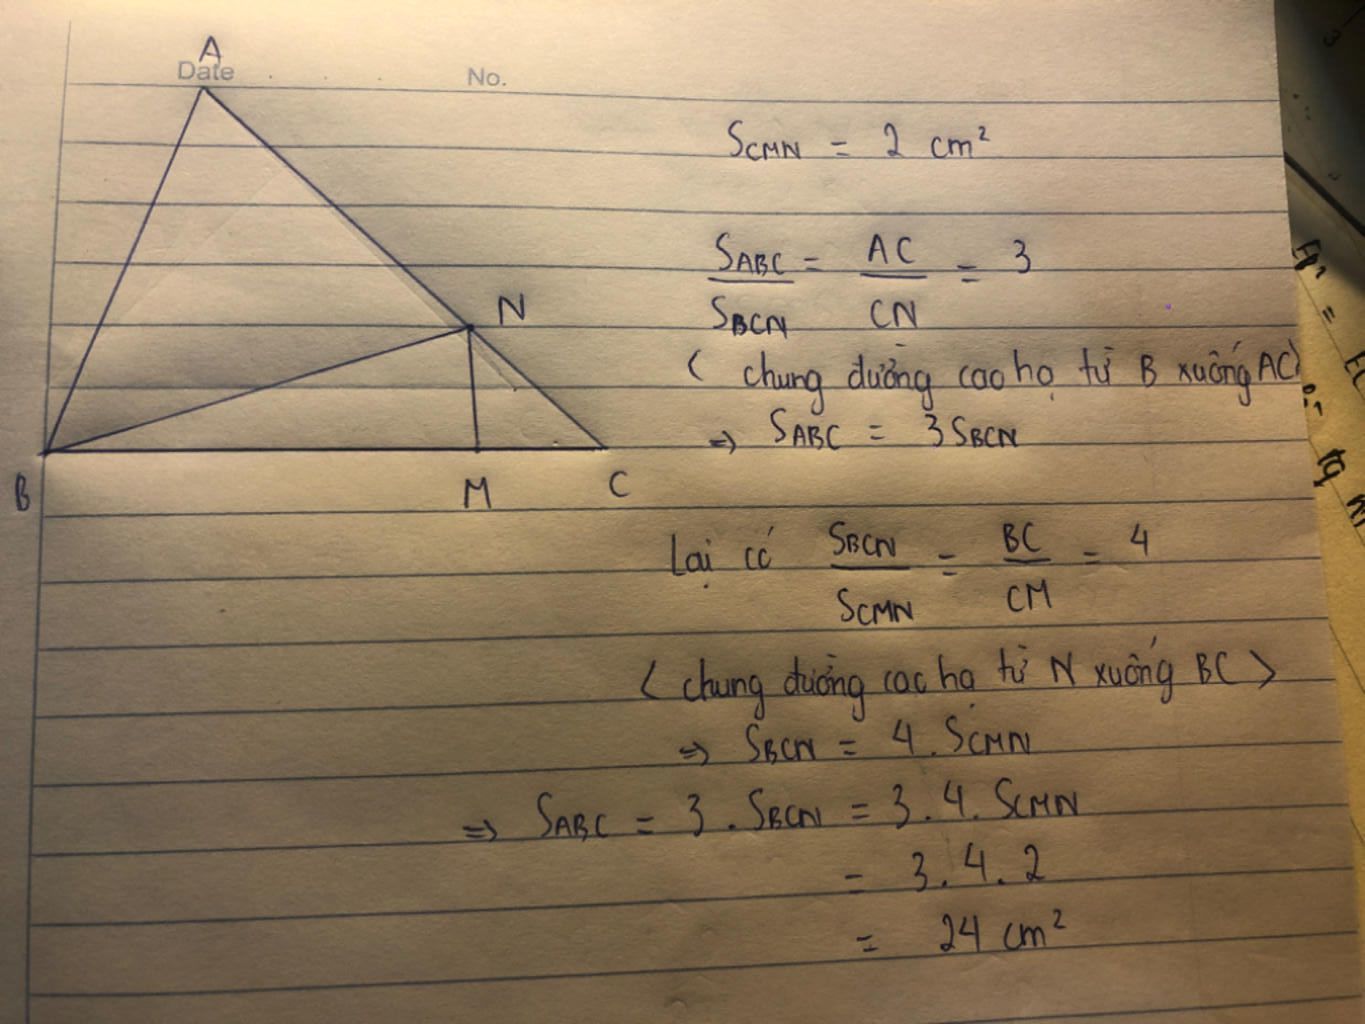 A
Date
No.
S_CMN = 2 cm²
S_ABC / S_BCN = AC / CN = 3
N
( chung đường cao hạ từ B xuống AC)
⇒ S_ABC = 3 S_BCN
B
M
C
Lại có S_BCN / S_CMN = BC / CM = 4
( chung đường cao hạ từ N xuống BC )
⇒ S_BCN = 4 . S_CMN
⇒ S_ABC = 3 . S_BCN = 3 . 4 . S_CMN
= 3 . 4 . 2
= 24 cm²